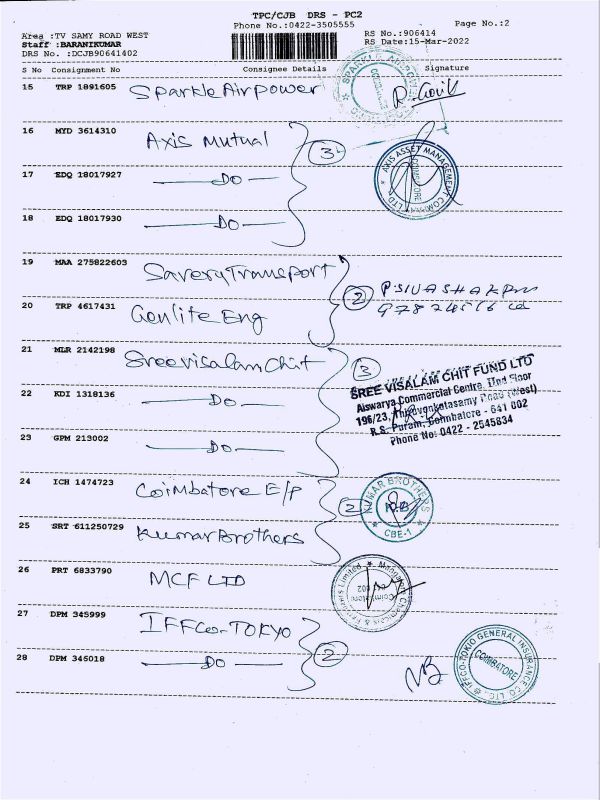 TPC/CJB DRS - PC2
Phone No.:0422-3505555
Page No.:2
Area :TV SAMY ROAD WEST
RS No.:906414
Staff :BARANIKUMAR
RS Date:15-Mar-2022
DRS No. :DCJB90641402
S No Consignment No Consignee Details Signature
15 TRP 1891605 Sparkle Airpower
16 MYD 3614310 Axis Mutual 3
AXIS ASSET MANAGEMENT COIMBATORE
17 EDQ 18017927 DO
18 EDQ 18017930 DO
19 MAA 275822603 Savery Transport
2
20 TRP 4617431 Genlite Eng
21 MLR 2142198 Sreevisalam Chit 3
SREE VISALAM CHIT FUND LTD
Aiswarya Commercial Centre, IInd Floor
196/23, Thiruvenkatasamy Road (West)
R.S. Puram, Coimbatore - 641 002
Phone No: 0422 - 2545834
22 KDI 1318136 DO
23 GPM 213002 DO
24 ICH 1474723 Coimbatore E/P 2
KUMAR BROTHERS CBE-1
25 SRT 611250729 Kumar Brothers
26 PRT 6833790 MCF LTD
27 DPM 345999 IFFCO-TOKYO 2
28 DPM 346018 DO
IFFCO-TOKIO GENERAL INSURANCE CO. LTD. COIMBATORE